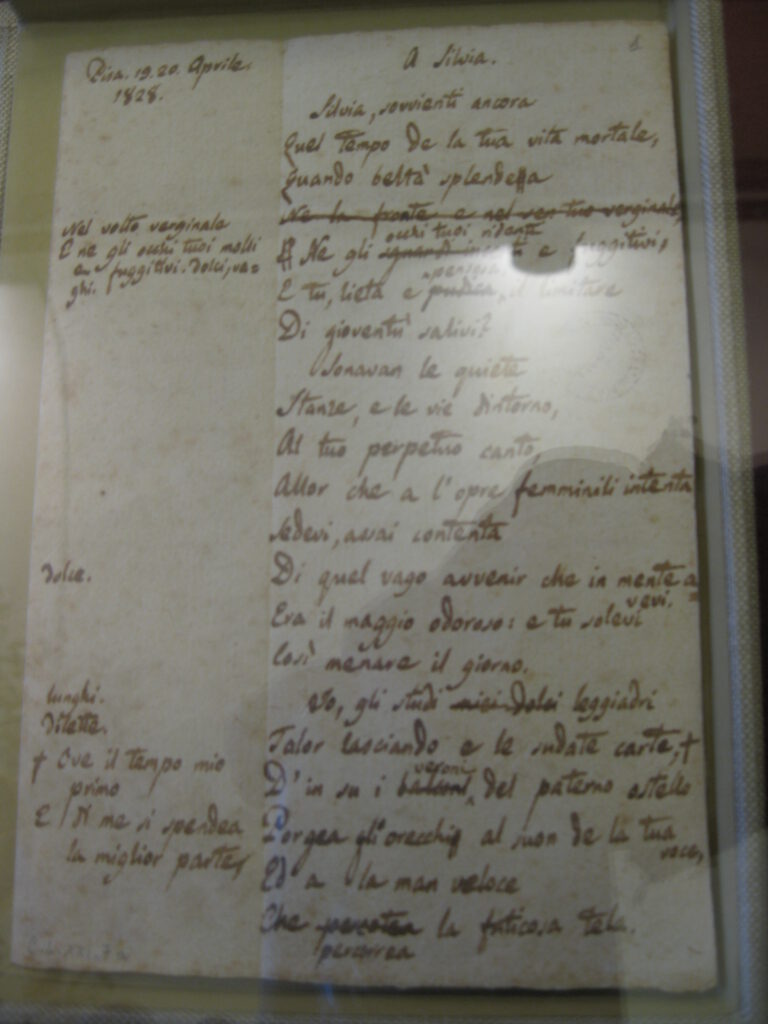 Pisa. 19. 20. Aprile.
1828.
A Silvia.
Silvia, sovvienti ancora
Quel tempo de la tua vita mortale,
Quando beltà splendea
Ne la fronte e nel sen tuo verginale,
occhi tuoi ridenti
Ne gli sguardi e fuggitivi,
pensosa
E tu, lieta e pudica, il limitare
Di gioventù salivi?
Sonavan le quiete
Stanze, e le vie dintorno,
Al tuo perpetuo canto,
Allor che a l'opre femminili intenta
Sedevi, assai contenta
Di quel vago avvenir che in mente a=
vevi.
Era il maggio odoroso: e tu solevi
Così menare il giorno.
Io, gli studi miei dolci leggiadri
Talor lasciando e le sudate carte, †
veroni
D'in su i balconi del paterno ostello
Porgea gli orecchi al suon de la tua
voce,
Ed a la man veloce
Che percotea la faticosa tela.
percorrea
Nel volto verginale
E ne gli occhi tuoi molli
e fuggitivi. dolci, va=
ghi.
dolce.
lunghi.
dilette.
† Ove il tempo mio
primo
E di me si spendea
la miglior parte,